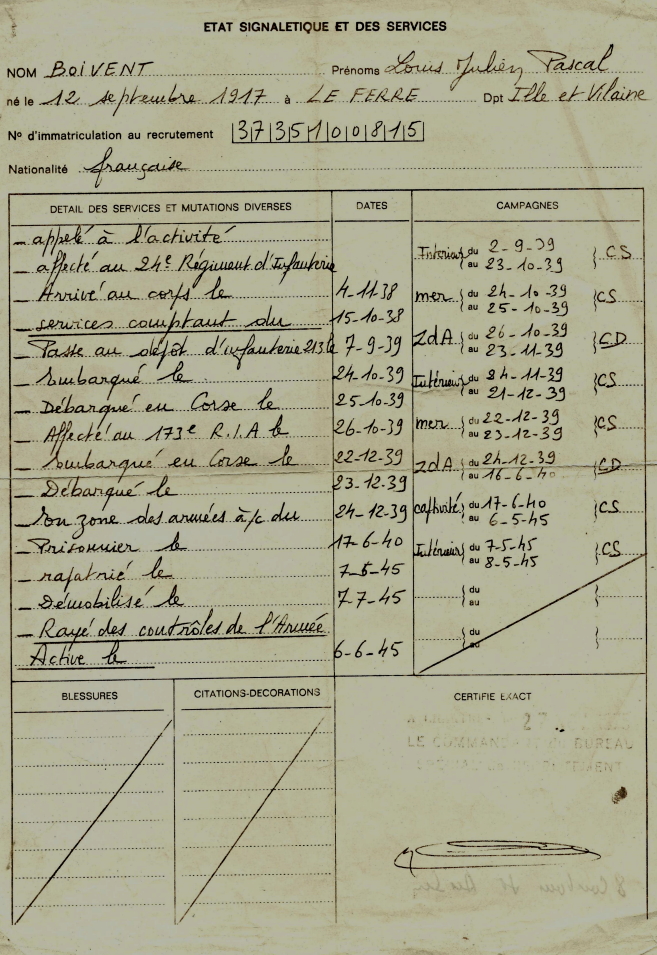 ETAT SIGNALETIQUE ET DES SERVICES
NOM BOIVENT Prénoms Louis Julien Pascal
né le 12 septembre 1917 à LE FERRE Dpt Ille et Vilaine
N° d'immatriculation au recrutement |3|7|3|5|1|0|0|8|1|5|
Nationalité française
DETAIL DES SERVICES ET MUTATIONS DIVERSES DATES CAMPAGNES
_ appelé à l'activité
_ affecté au 24e Régiment d'Infanterie
_ Arrivé au corps le 4-11-38
_ services comptant du 15-10-38
_ Passé au dépôt d'infanterie 213 le 7-9-39
_ Embarqué le 24-10-39
_ Débarqué en Corse le 25-10-39
_ Affecté au 173e R.I.A le 26-10-39
_ Embarqué en Corse le 22-12-39
_ Débarqué le 23-12-39
_ En zone des armées à/c du 24-12-39
_ Prisonnier le 17-6-40
_ rapatrié le 7-5-45
_ Démobilisé le 7-7-45
_ Rayé des contrôles de l'Armée
Active le 6-6-45
Intérieur du 2-9-39 CS
au 23-10-39
mer du 24-10-39 CS
au 25-10-39
ZdA du 26-10-39 CD
au 23-11-39
Intérieur du 24-11-39 CS
au 21-12-39
mer du 22-12-39 CS
au 23-12-39
ZdA du 24-12-39 CD
au 16-6-40
captivité du 17-6-40 CS
au 6-5-45
Intérieur du 7-5-45 CS
au 8-5-45
du
au
du
au
BLESSURES CITATIONS-DECORATIONS CERTIFIE EXACT
LE COMMANDANT DU BUREAU